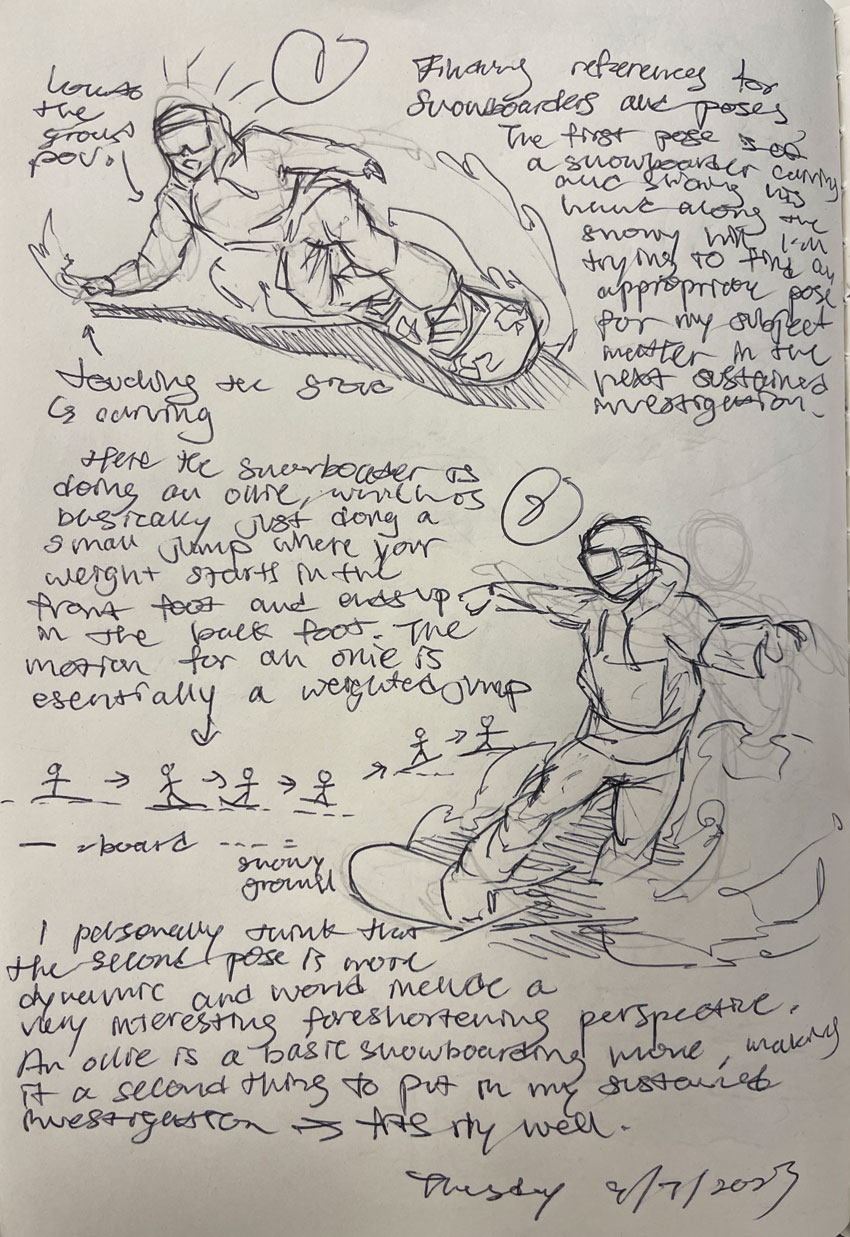 1
Finding references for
snowboarders and poses
The first pose is of
a snowboarder carving
and his
hand along the
snowy hill I'm
trying to find an
appropriate pose
for my subject
matter in the
next sustained
investigation.
the
ground
pov.
touching the
↳ carving
Here the snowboarder is
doing an ollie, which is
basically just doing a
small jump where your
weight starts in the
front foot and ends up
in the back foot. The
motion for an ollie is
esentially a weighted jump
2
— = board --- =
snowy
ground
I personally think that
the second pose is more
dynamic and would include a
very interesting foreshortening perspective.
An ollie is a basic snowboarding move, making
it a second thing to put in my sustained
investigation → fits rly well.
/7/2023